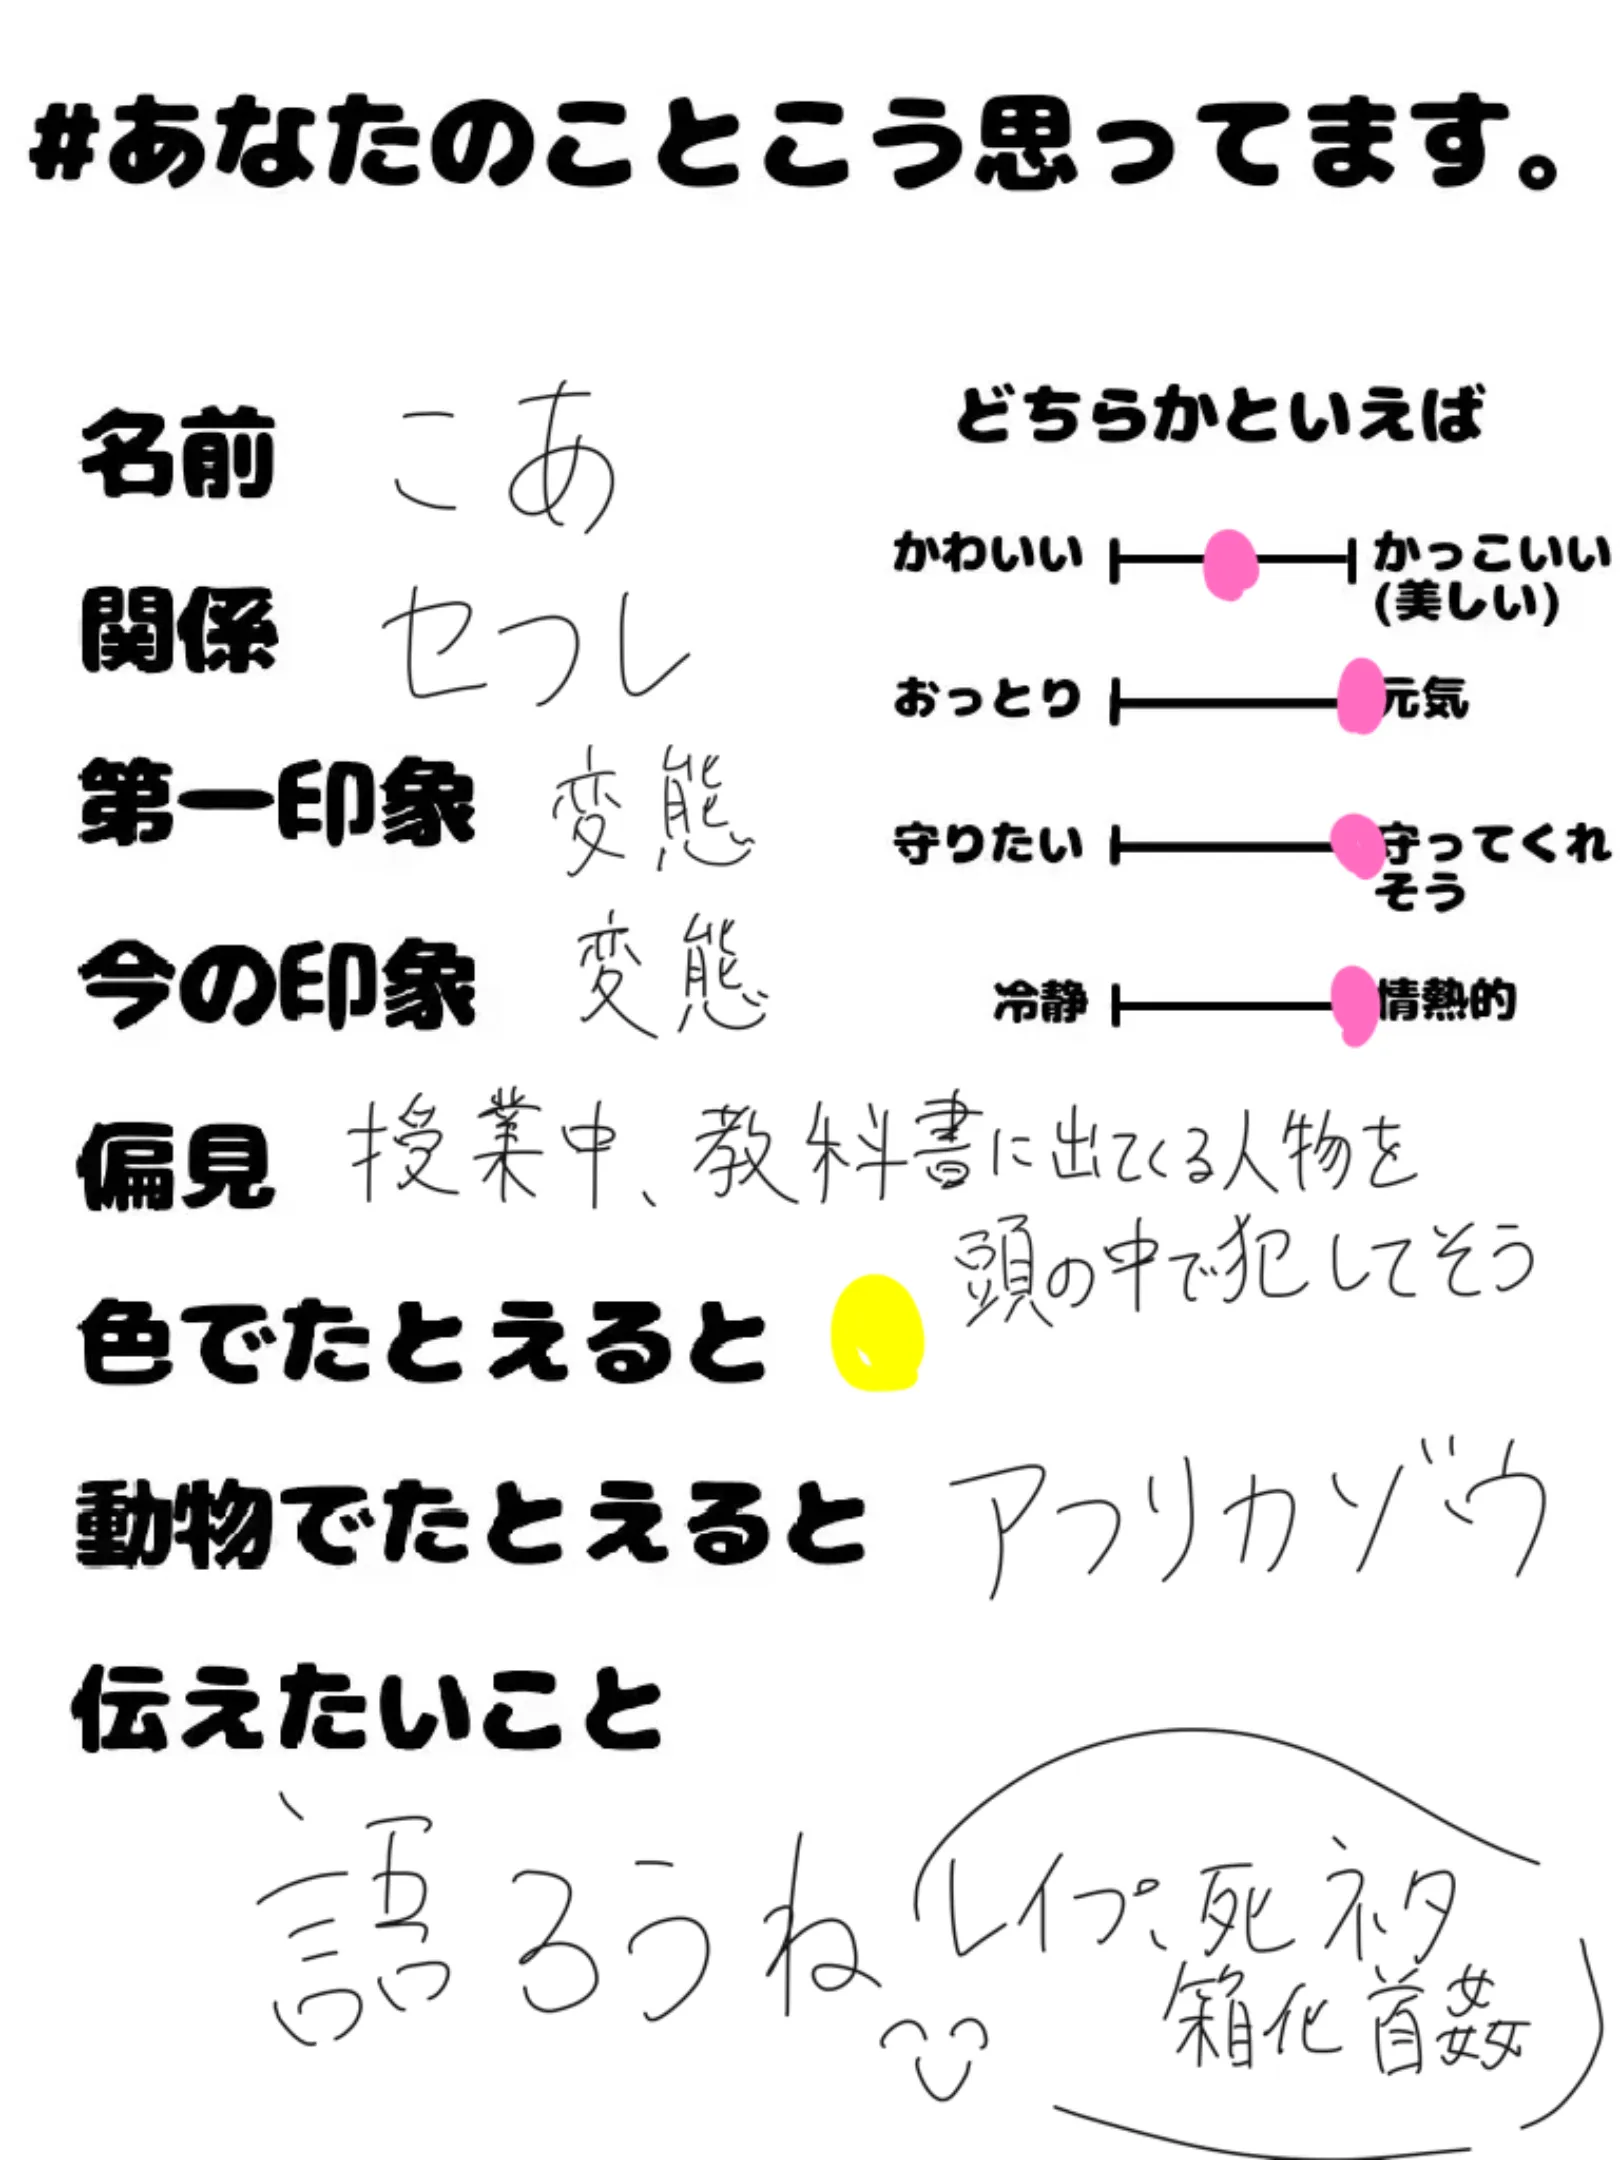 #あなたのことこう思ってます。
名前 こあ
関係 セフレ
第一印象 変態
今の印象 変態
どちらかといえば
かわいい かっこいい
(美しい)
おっとり 元気
守りたい 守ってくれ
そう
冷静 情熱的
偏見 授業中、教科書に出てくる人物を
頭の中で犯してそう
色でたとえると
動物でたとえると アフリカゾウ
伝えたいこと
語ろうね
レイプ、死ネタ
箱化首姦